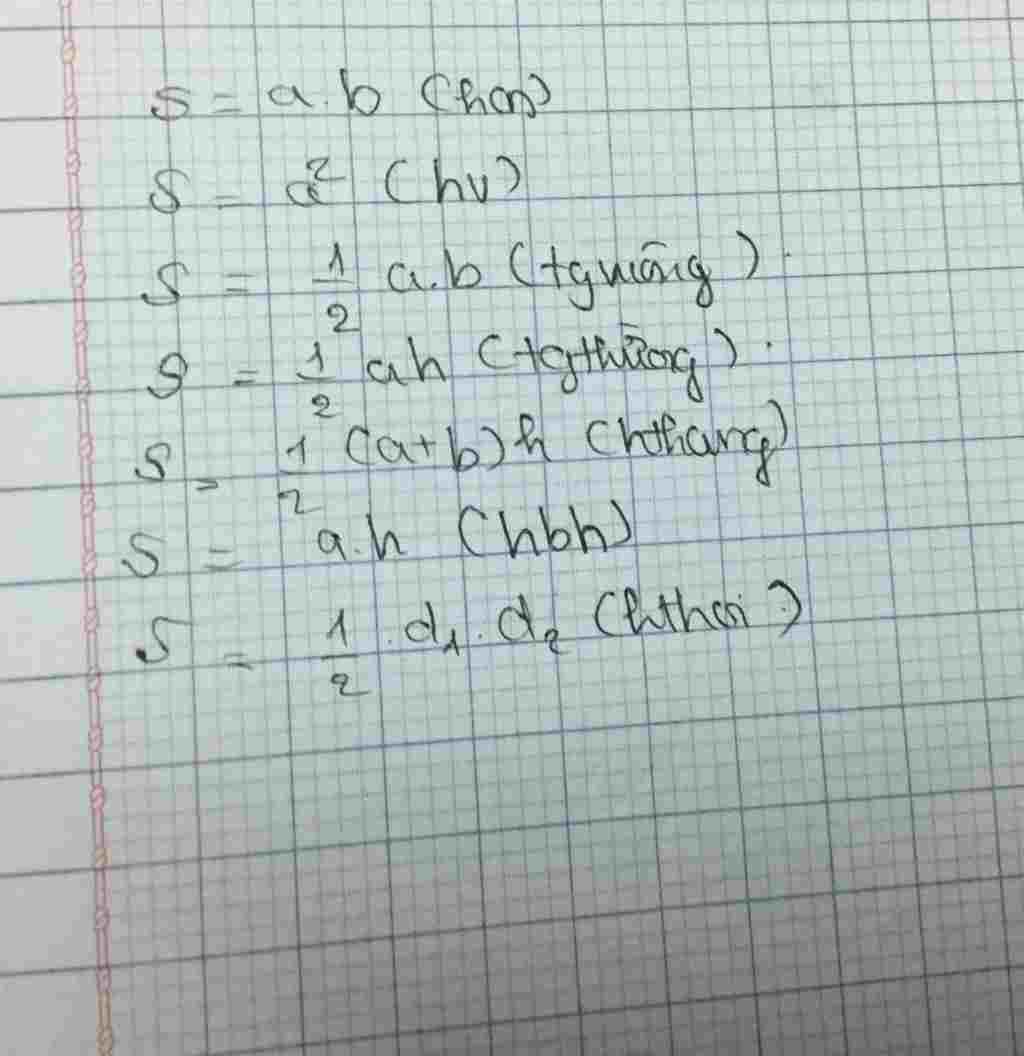 S = a.b (hcn)
S = a² (hv)
S = 1/2 a.b (tgvuông)
S = 1/2 ah (tgthường)
S = 1/2 (a+b)h (hthang)
S = a.h (hbh)
S = 1/2 .d₁.d₂ (hthoi)